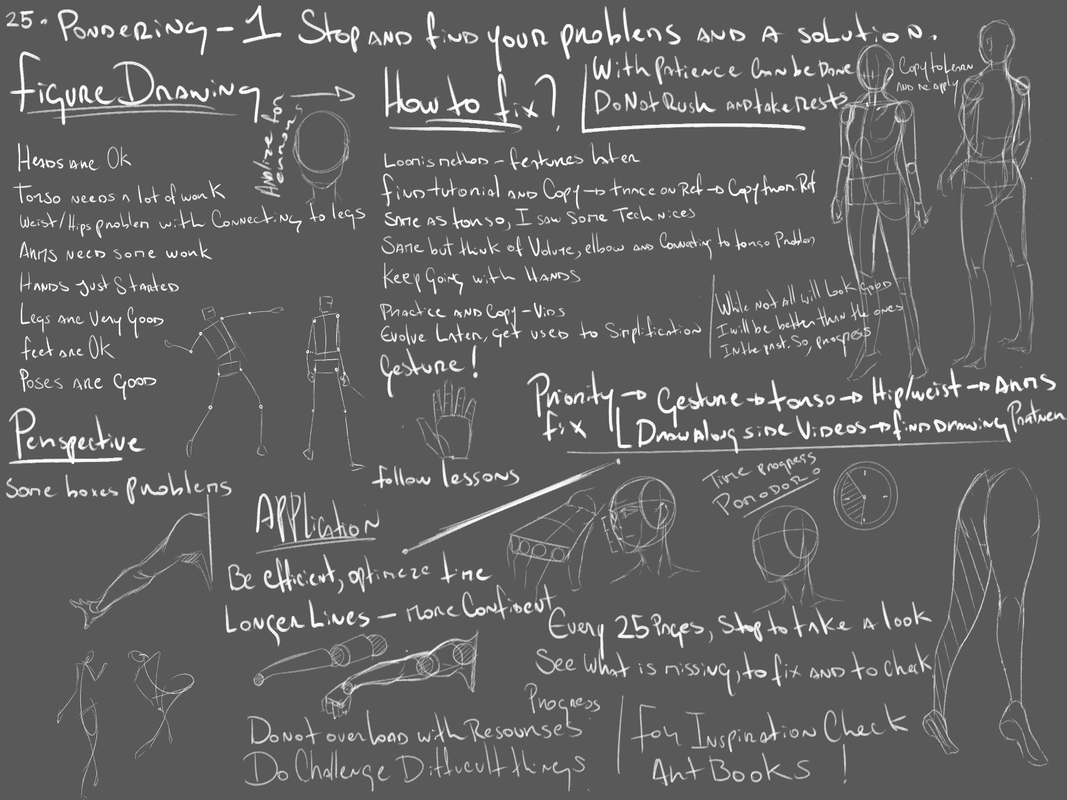 25. Pondering - 1 Stop and find your problems and a solution.
Figure Drawing
How to fix?
With Patience Can be Done
Do Not Rush and take Rests
Copy to Learn
and Re apply
Heads are Ok
Torso needs a lot of work
Weist/Hips problem with Connecting to legs
Arms need some work
Hands Just Started
Legs are Very Good
feet are OK
Poses are Good
Loomis method - features later
find tutorial and Copy → trace on Ref → Copy from Ref
Same as torso, I saw Some Tech nices
Same but think of Volume, elbow and Connecting to torso Problem
Keep Going with Hands
Practice and Copy - Vids
Evolve Later, get used to Simplification
Gesture!
While not all will Look good
I will be better than the ones
In the past. So, progress
Priority → Gesture → torso → Hip/weist → Arms
fix Draw along side Videos → find Drawing Partner
Perspective
Some boxes problems
follow lessons
Time progress
Pomodoro
Application
Be efficient, optimeze time
Longer Lines - more Confident
Every 25 Pages, Stop to take a look
See what is missing, to fix and to check
Progress
Do not overload with Resourses
Do Challenge Diffucult things
For Inspiration Check
Art Books !